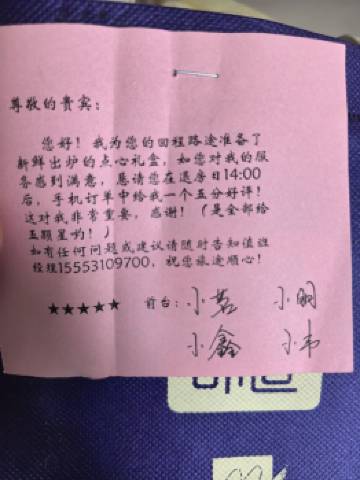 尊敬的贵宾：
您好！我为您的回程路途准备了
新鲜出炉的点心礼盒，如您对我的服
务感到满意，恳请您在退房日14:00
后，手机订单中给我一个五分好评！
这对我非常重要，感谢！（是全部给
五颗星哟！）
如有任何问题或建议请随时告知值班
经理15553109700，祝您旅途顺心！
★★★★★ 前台：小茗 小明
小鑫 小韦